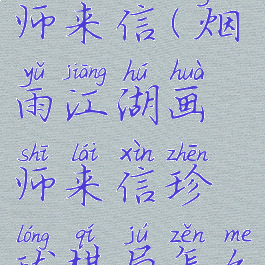 师来信(烟
yǔ jiāng hú huà
雨江湖画
shī lái xìn zhēn
师来信珍
lóng qí jú zěn me
珑棋局怎么